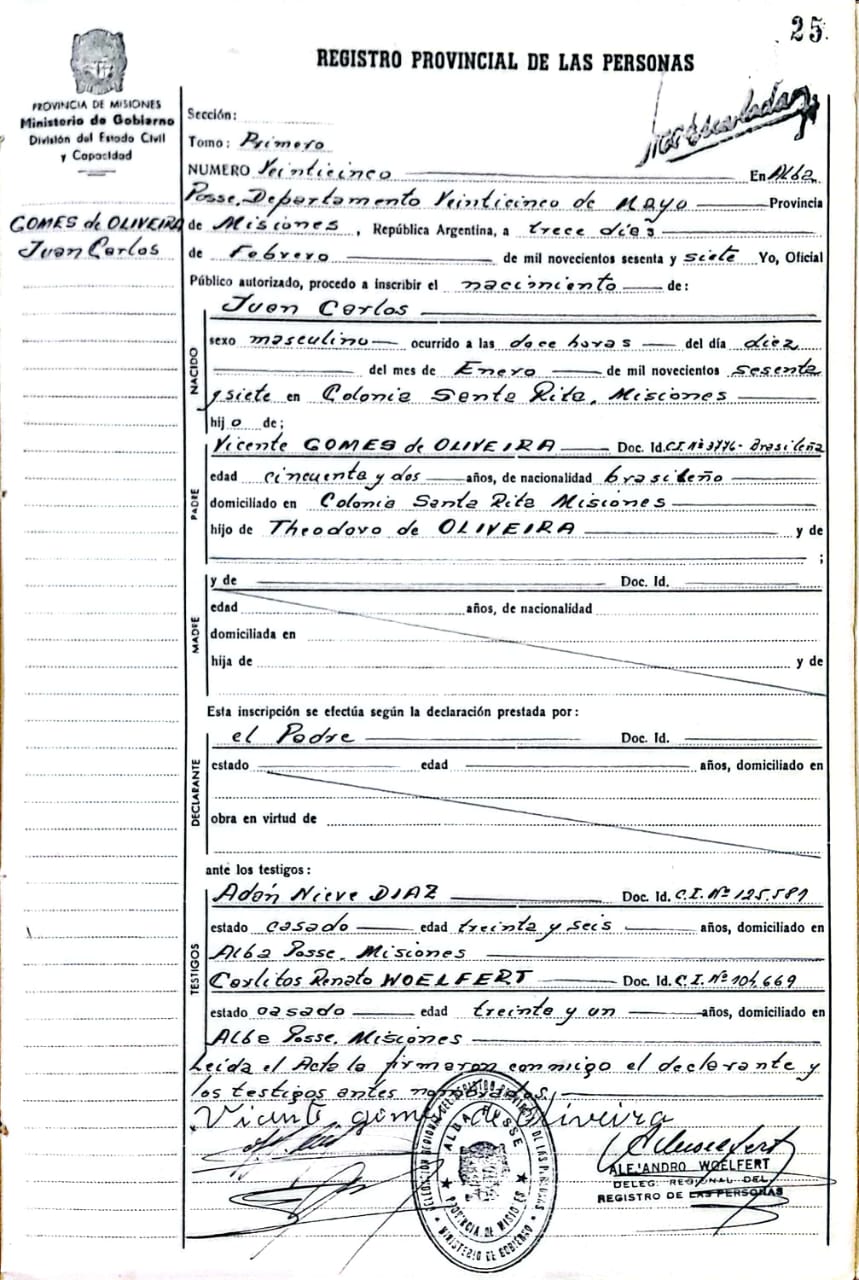 25
REGISTRO PROVINCIAL DE LAS PERSONAS
PROVINCIA DE MISIONES
Ministerio de Gobierno
División del Estado Civil
y Capacidad
GOMES de OLIVEIRA
Juan Carlos
Sección:
Tomo: Primero
NUMERO Veinticinco En Alba
Posse, Departamento Veinticinco de Mayo Provincia
de Misiones, República Argentina, a trece días
de Febrero de mil novecientos sesenta y siete Yo, Oficial
Público autorizado, procedo a inscribir el nacimiento de:
NACIDO
Juan Carlos
sexo masculino ocurrido a las doce horas del día diez
del mes de Enero de mil novecientos sesenta
y siete en Colonia Santa Rita, Misiones
hijo de;
PADRE
Vicente GOMES de OLIVEIRA Doc. Id. C.I. Nº 3776- Brasileña
edad cincuenta y dos años, de nacionalidad brasileño
domiciliado en Colonia Santa Rita Misiones
hijo de Theodoro de OLIVEIRA y de
;
MADRE
y de Doc. Id.
edad años, de nacionalidad
domiciliada en
hija de y de
Esta inscripción se efectúa según la declaración prestada por:
DECLARANTE
el Padre Doc. Id.
estado edad años, domiciliado en
obra en virtud de
ante los testigos:
TESTIGOS
Adán Nieve DIAZ Doc. Id. C.I. Nº 125.581
estado casado edad treinta y seis años, domiciliado en
Alba Posse, Misiones
Carlitos Renato WOELFERT Doc. Id. C.I. Nº 104,669
estado casado edad treinta y un años, domiciliado en
Alba Posse, Misiones
Leída el Acta la firmaron conmigo el declarante y
los testigos antes nombrados.
Vicente gomes de Oliveira
ALBA POSSE
PROVINCIA DE MISIONES
MINISTERIO DE GOBIERNO
ALEJANDRO WOELFERT
DELEG. REGIONAL DEL
REGISTRO DE LAS PERSONAS